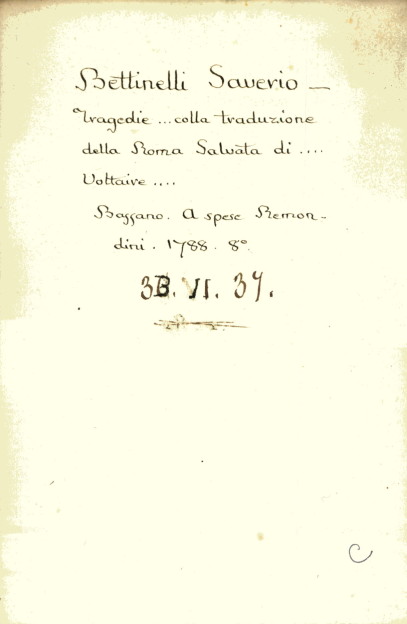 Bettinelli Saverio —
Tragedie ... colla traduzione
della Roma Salvata di ....
Voltaire ....
Bassano. A spese Remon-
dini. 1788. 8º.
3B. VI. 37.
C